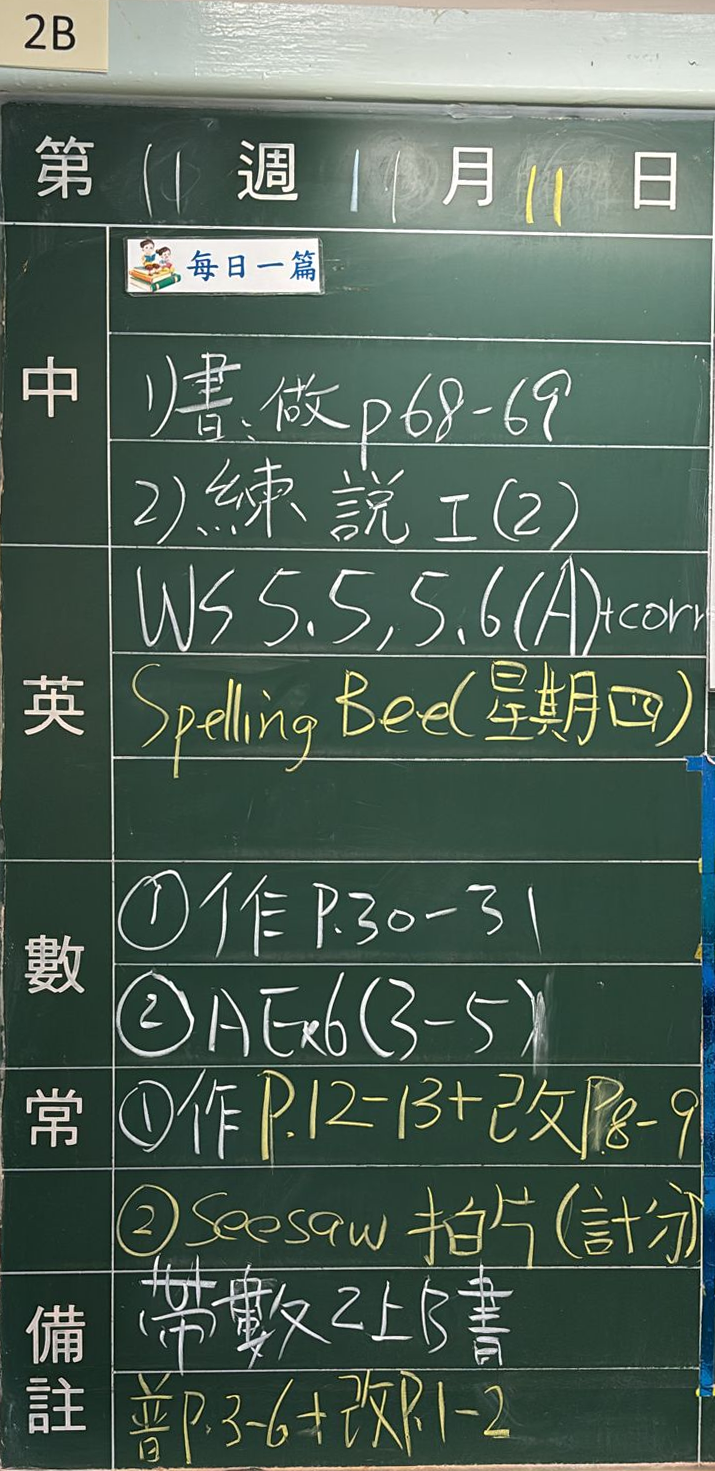 2B
第 11 週 11 月 11 日
中
每日一篇
1)書:做p68-69
2)練説工(2)
英
WS 5.5,5.6(A)+corr
Spelling Bee(星期四)
數
①作P.30-31
②AEx6(3-5)
常
①作P.12-13+改P.8-9
②Seesaw拍片(計分)
備註
帶數2上B書
普P.3-6+改P.1-2